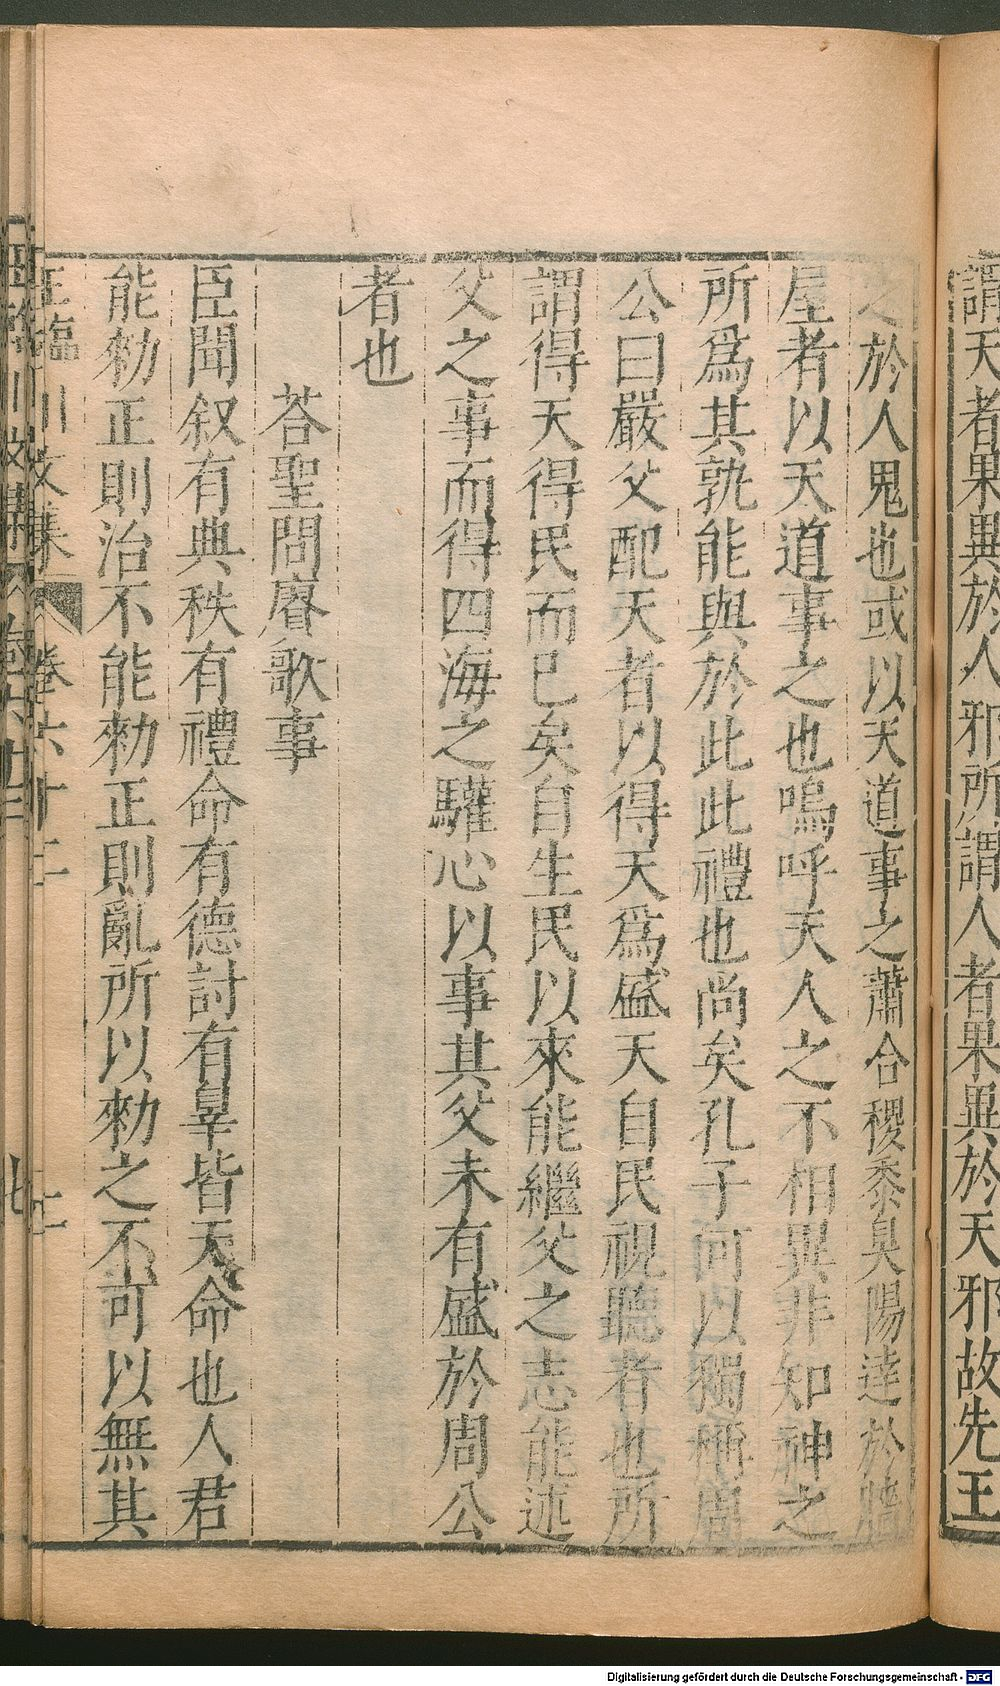 謂天者果異於人邪所謂人者果異於天邪故先王
之於人鬼也或以天道事之蕭合稷黍臭陽達於牆
屋者以天道事之也嗚呼天人之不相異非知神之
所爲其孰能與於此此禮也尚矣孔子何以獨稱周
公曰嚴父配天者以得天爲盛天自民視聽者也所
謂得天得民而已矣自生民以來能繼父之志能述
父之事而得四海之驩心以事其父未有盛於周公
者也
荅聖問賡歌事
臣聞叙有典秩有禮命有德討有辠皆天命也人君
能勑正則治不能勑正則亂所以勑之不可以無其
王臨川文集 卷六十二
Digitalisierung gefördert durch die Deutsche Forschungsgemeinschaft - DFG